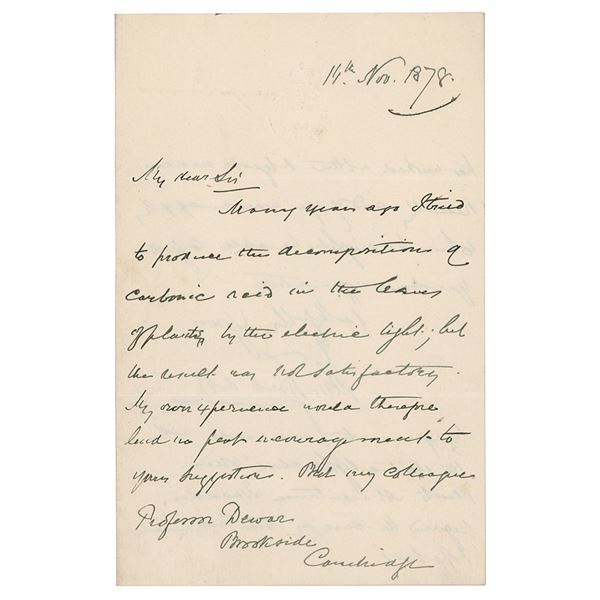 14th Nov. 1878.
My dear Sir
Many years ago I tried
to produce the decomposition of
carbonic acid in the leaves
of plants, by the electric light; but
the result was not satisfactory.
My own experience would therefore
lend no great encouragement to
your suggestion. But my colleague
Professor Dewar
Brookside
Cambridge